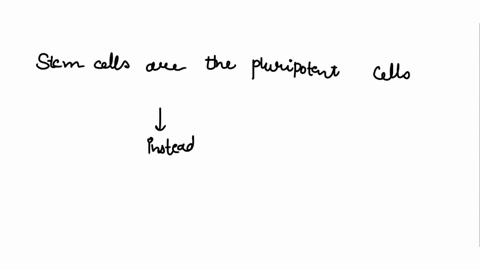 Stem cells are the pluripotent cells
↓
instead